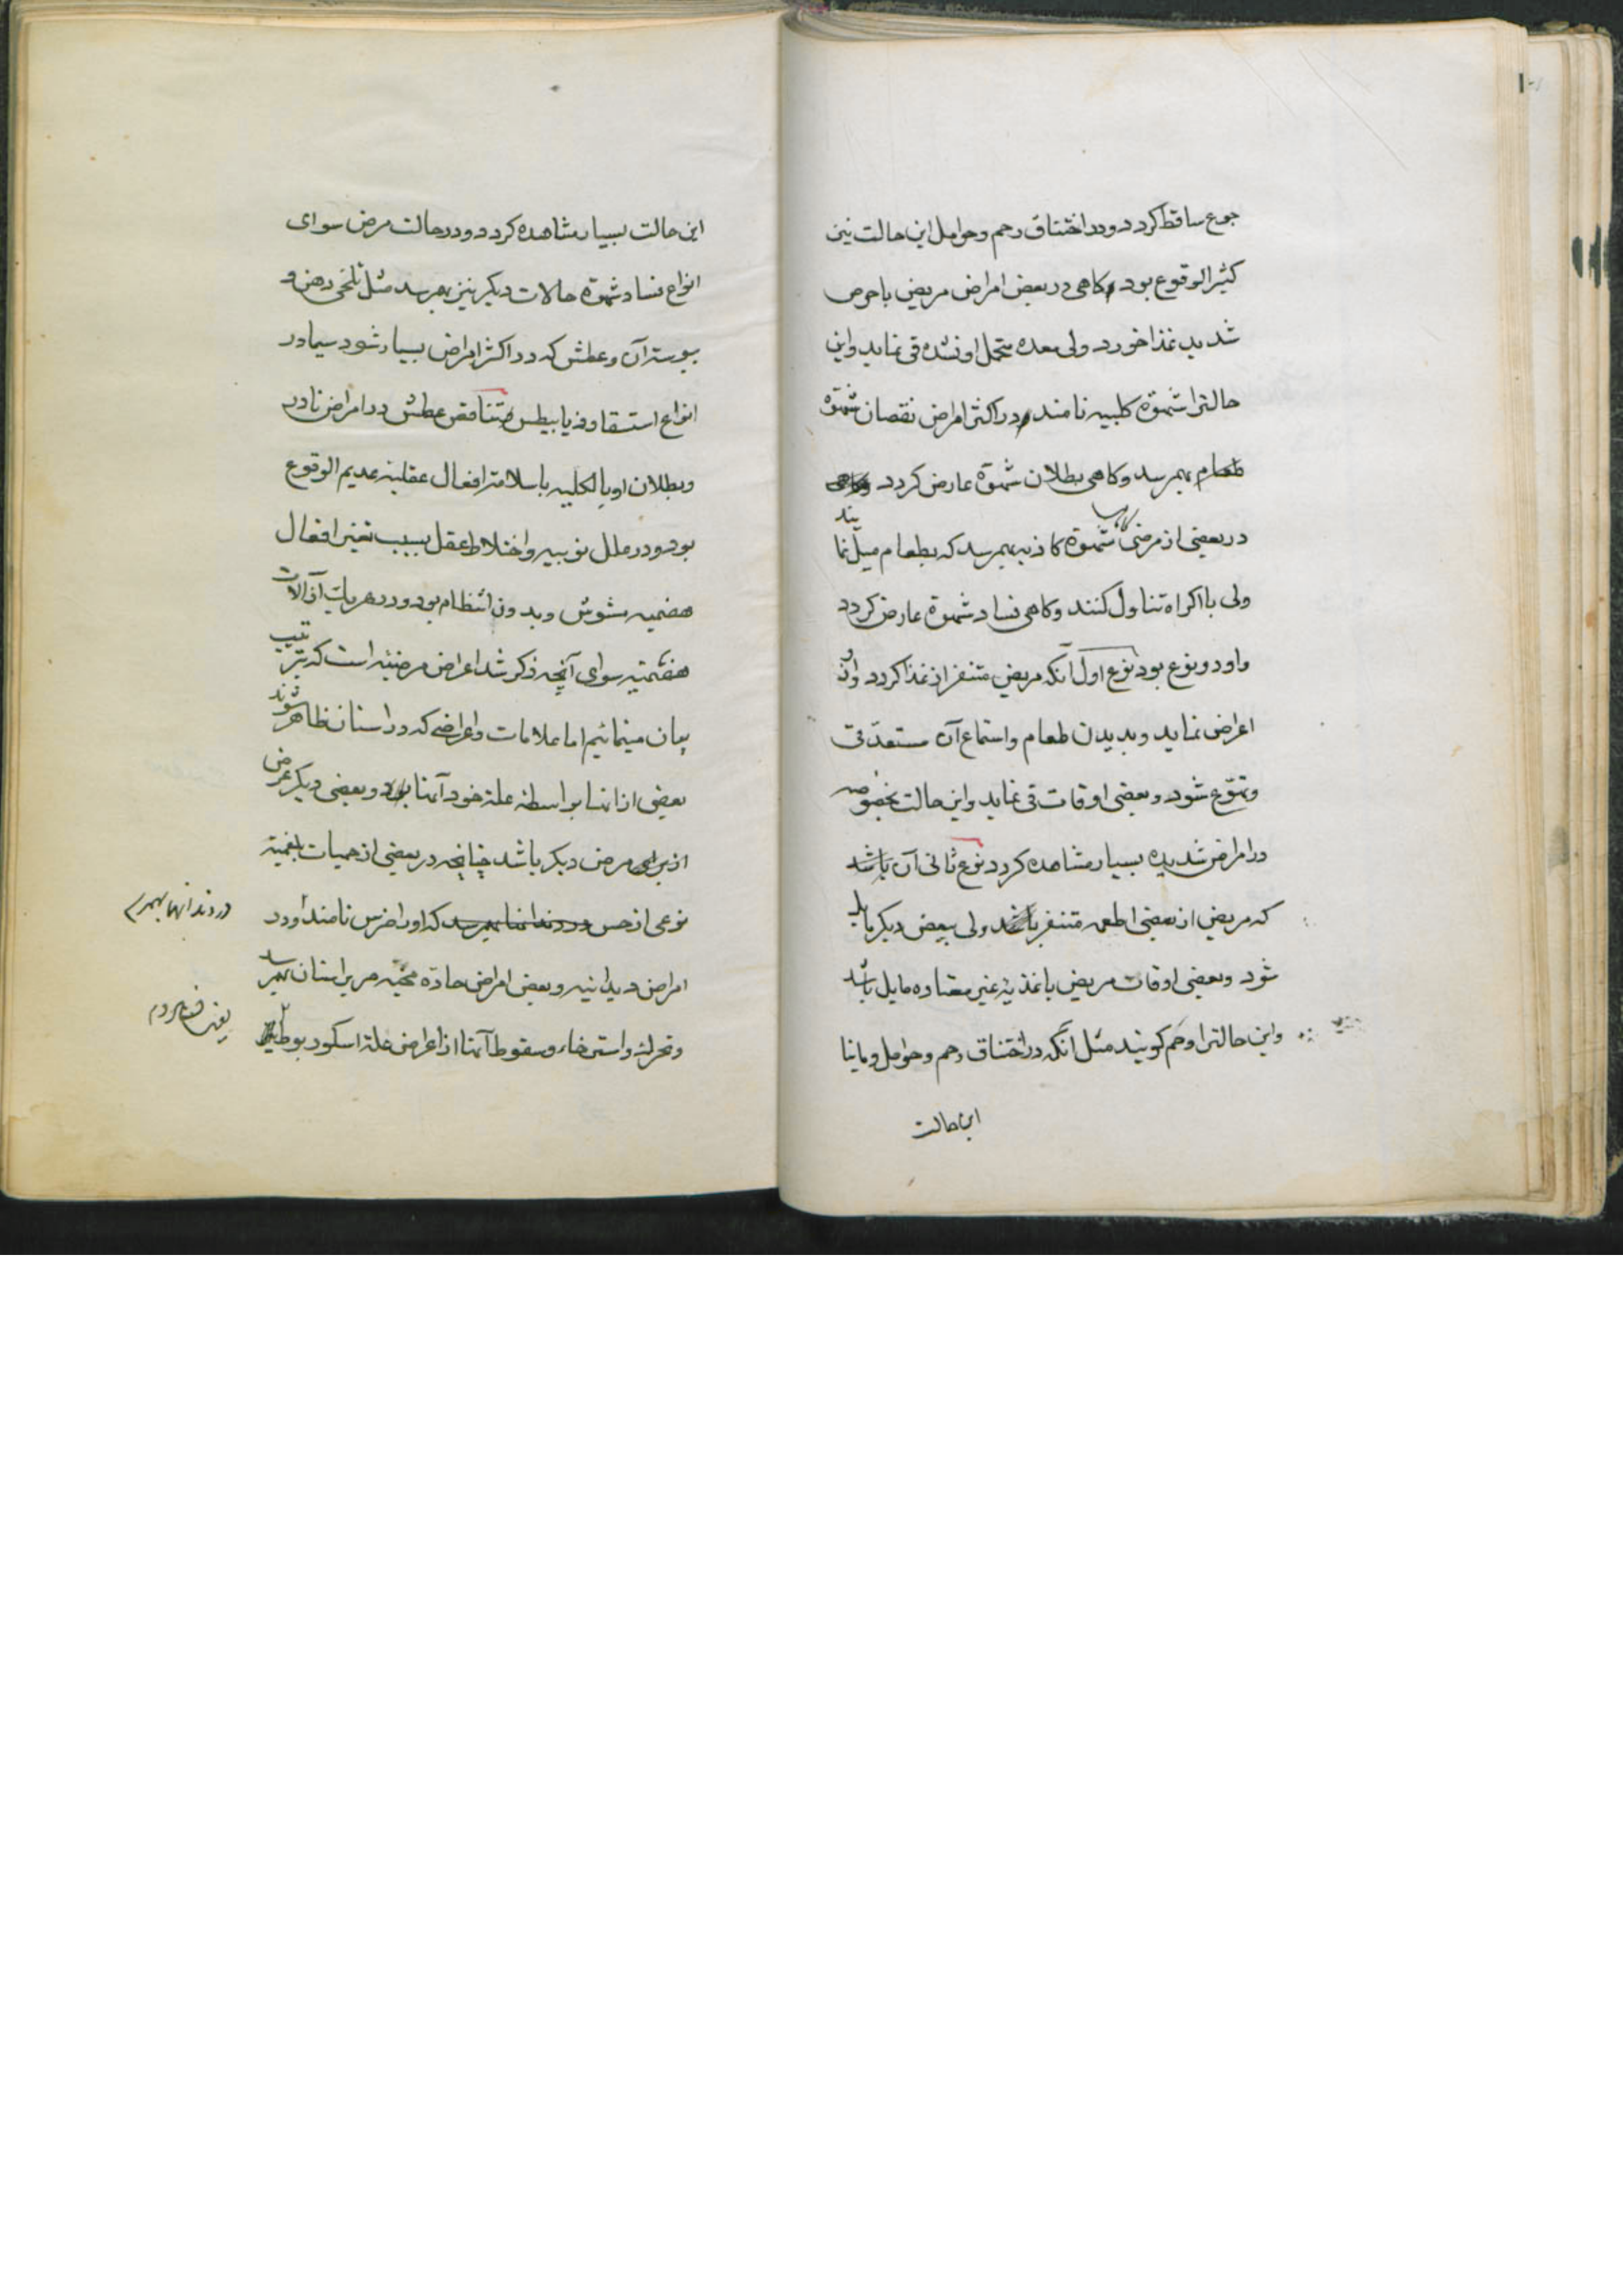 جوع ساقط کردد و در اختناق رحم و حوامل این حالت نیز
کثیر الوقوع بود و کاهی در بعض امراض مریض با حرص
شدید غذا خورد ولی معده متحمل او نشده قی نماید و این
حالترا شهوة کلبیه نامند و در اکثر امراض نقصان شهوة
طعام بهم رسد و کاهی بطلان شهوة عارض کردد
در بعضی از مرضی شهوة کاذبه بهم رسد که بطعام میل نمایند
ولی با اکراه تناول کنند و کاهی فساد شهوة عارض کردد
و او دو نوع بود نوع اول آنکه مریض متنفر از غذا کردد و از او
اعراض نماید و بدیدن طعام و استماع آن مستعد قی
و تهوع شود و بعضی اوقات قی نماید و این حالت بخصوصه
در امراض شدیده بسیار مشاهده کردد نوع ثانی آن باشد
که مریض از بعضی اطعمه متنفر باشد ولی ببعض دیکر مایل
شود و بعضی اوقات مریض باغذیهٔ غیر معتاده مایل باشد
و این حالترا وحم کویند مثل آنکه در اختناق رحم و حوامل و مانیا
این حالت
این حالت بسیار مشاهده کردد و در حالت مرض سوای
انواع فساد شهوة حالات دیکر نیز بهم رسد مثل تلخی دهن و
یبوسة آن و عطش که در اکثر امراض بسیار شود سیما در
انواع استسقا و ذیابیطس متناقص عطش در امراض نادر
و بطلان او بالکلیه با سلامة افعال عقلیه عدیم الوقوع
بود و در علل نوبیه و اختلاط عقل بسبب تغیر افعال
هضمیه مشوش و بدون انتظام بود و در هر یک از آلات
هضمیه سوای آنچه ذکر شد اعراض مرضیه است که بترتیب
بیان مینمائیم اما علامات و اعراضی که در اسنان ظاهر شوند
بعضی از آنها بواسطهٔ علة خود آنها بود و بعضی دیکر عرض
از برای مرض دیکر باشد چنانچه در بعضی از حمیات بلغمیة
نوعی از حس در دندانها بهم رسد که او را ضرس نامند و در
دردندانها بهم رسد
امراض دیدانیه و بعض امراض حاده مخیه صریر اسنان بهم رسد
و تحرک و استرخاء و سقوط آنها از اعراض علة اسکوربوط